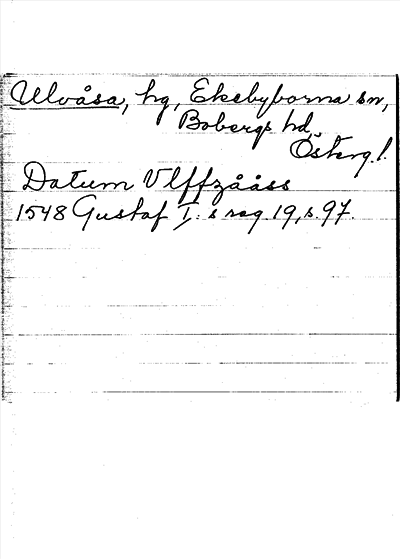 Ulvåsa, hg, Ekebyborna sn,
Bobergs hd,
Österg. l.
Datum Vlffzååss
1548 Gustaf I:s reg. 19, s. 97.